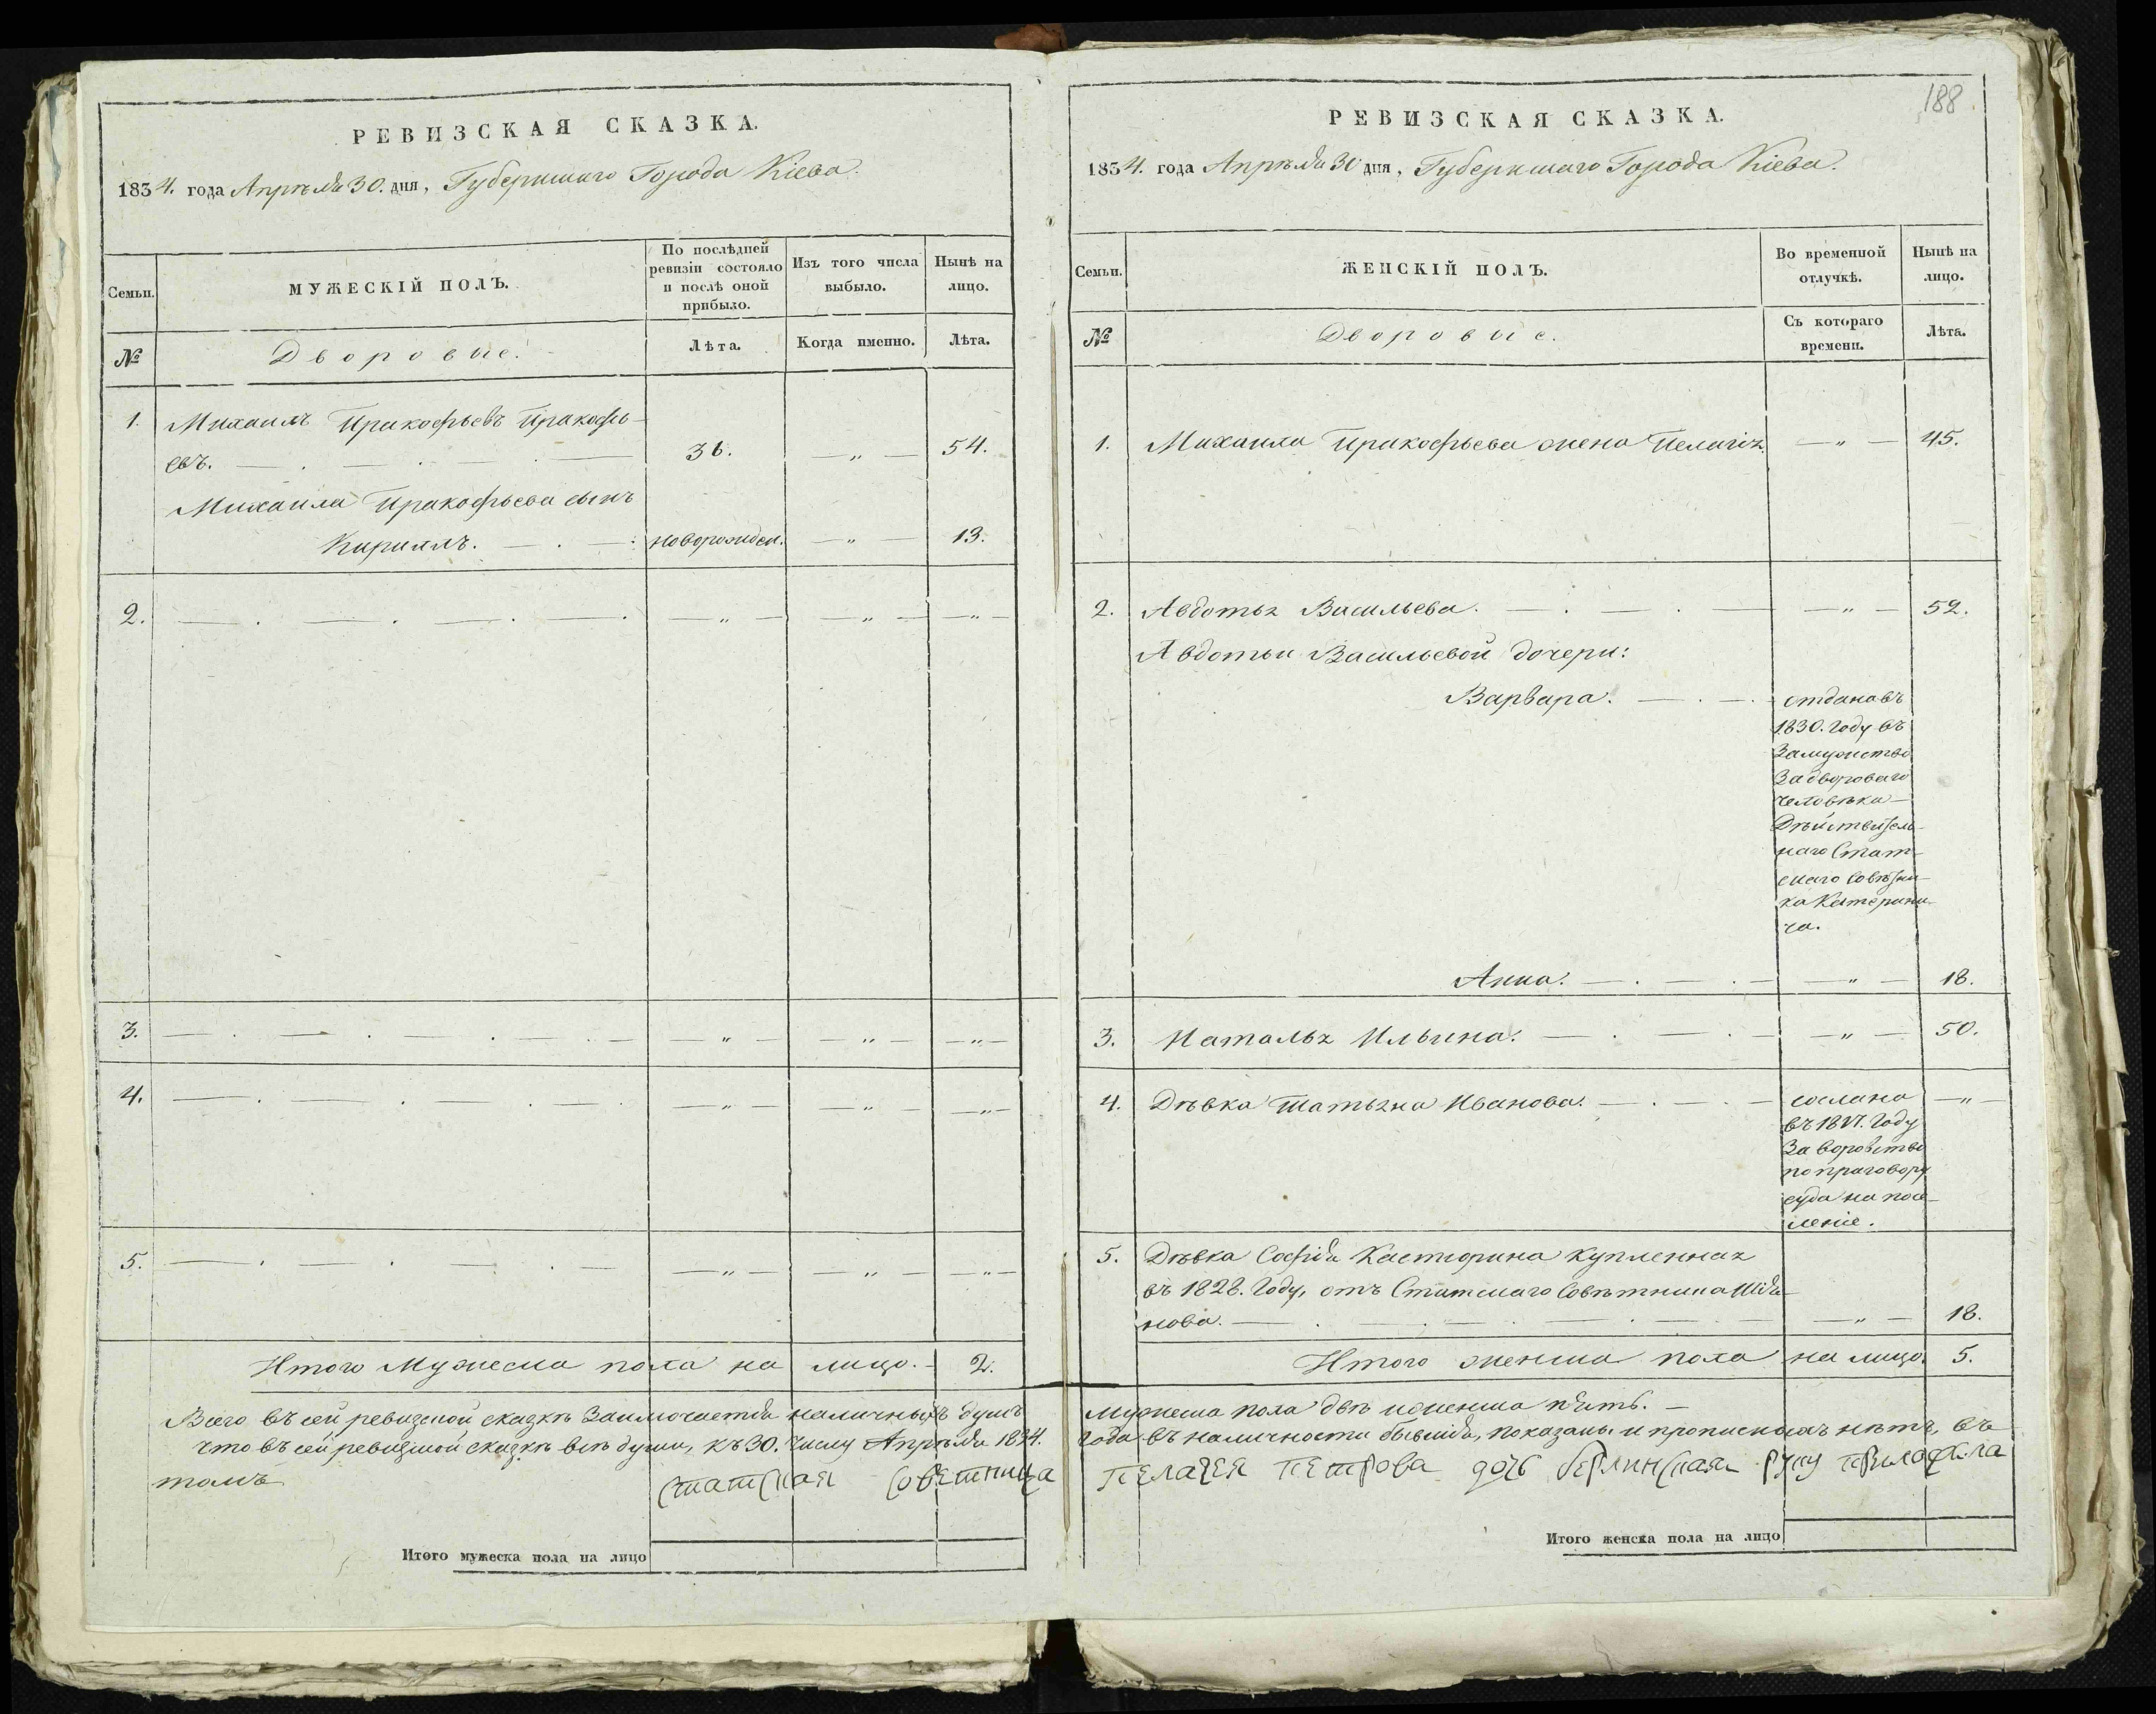 РЕВИЗСКАЯ СКАЗКА.
1834. года Апрѣля 30. дня, Губернскаго Города Кіева.
Семьи.
МУЖЕСКІЙ ПОЛЪ.
По послѣдней
ревизіи состояло
и послѣ оной
прибыло.
Изъ того числа
выбыло.
Нынѣ на
лицо.
№
Дворовые.
Лѣта.
Когда именно.
Лѣта.
1. Михаилъ Пракофьевъ Пракофь-
евъ. 36. — „ — 54.
Михаила Пракофьева сынъ
Кирилъ. новорожден. — „ — 13.
2. — „ — — „ — — „ —
3. — „ — — „ — — „ —
4. — „ — — „ — — „ —
5. — „ — — „ — — „ —
Итого Мужеска пола на лицо. 2.
Всего въ сей ревизской сказкѣ заключается наличныхъ душъ
что въ сей ревизской сказкѣ всѣ души, къ 30. числу Апрѣля 1834.
томъ
статская советница
Итого мужеска пола на лицо
188
РЕВИЗСКАЯ СКАЗКА.
1834. года Апрѣля 30 дня, Губернскаго Города Кіева.
Семьи.
ЖЕНСКІЙ ПОЛЪ.
Во временной
отлучкѣ.
Нынѣ на
лицо.
№
Дворовые.
Съ котораго
времени.
Лѣта.
1. Михаила Пракофьева жена Пелагія — „ — 45.
2. Авдотья Васильева. — „ — 52.
Авдотьи Васильевой дочери:
Варвара. отдана въ
1830. году въ
замужство
за двороваго
человѣка
Дѣйствитель-
наго Стат-
скаго Совѣтни-
ка Катерини-
ча.
Анна. — „ — 18.
3. Наталья Ильина. — „ — 50.
4. Дѣвка Татьяна Иванова. сослана — „ —
въ году
за воровство
по приговору
суда на посе-
леніе.
5. Дѣвка Софія Касторина купленная
въ 1828. году, отъ Статскаго Совѣтника
нова. — „ — 18.
Итого женска пола на лицо. 5.
мужеска пола двѣ и женска пять. —
года въ наличности бывшія, показаны и прописныхъ нѣтъ, въ
пелагея петрова дочь берлинская руку приложила
Итого женска пола на лицо